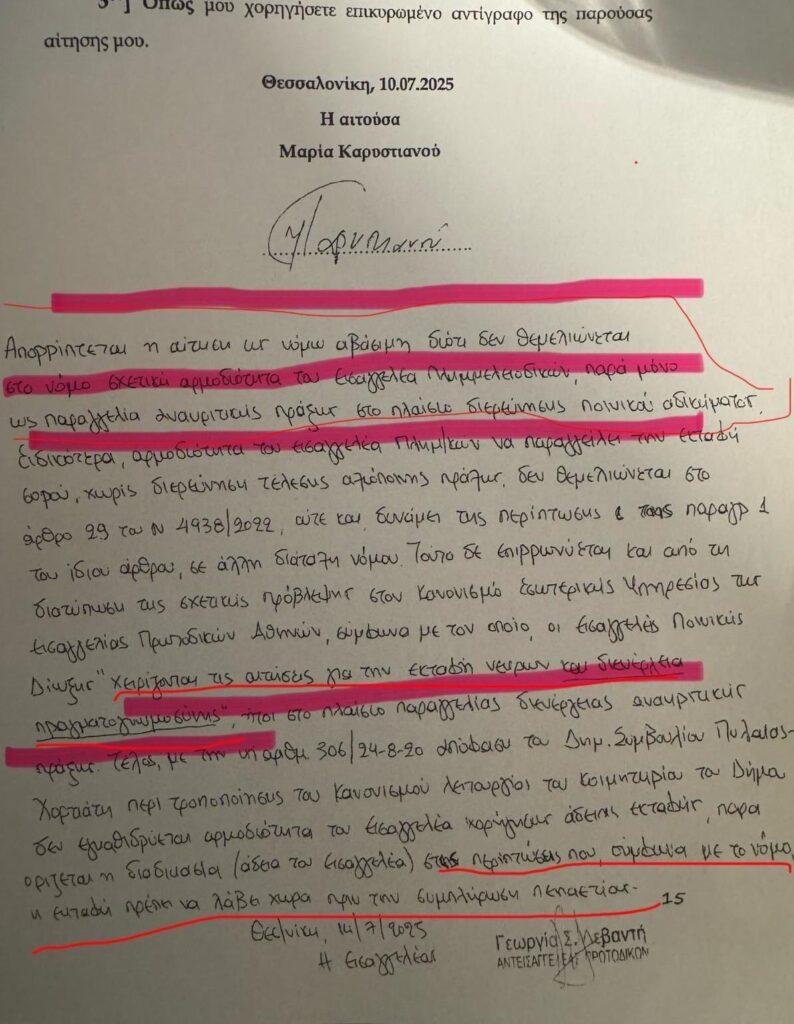 3º] Όπως μου χορηγήσετε επικυρωμένο αντίγραφο της παρούσας
αίτησης μου.
Θεσσαλονίκη, 10.07.2025
Η αιτούσα
Μαρία Καρυστιανού
Απορρίπτεται η αίτηση ως νόμω αβάσιμη διότι δεν θεμελιώνεται
στο νόμο σχετική αρμοδιότητα του Εισαγγελέα Πλημμελειοδικών, παρά μόνο
ως παραγγελία ανακριτικής πράξης στο πλαίσιο διερεύνησης ποινικού αδικήματος.
Ειδικότερα, αρμοδιότητα του εισαγγελέα Πλημ/κων να παραγγείλει την εκταφή
σορού, χωρίς διερεύνηση τέλεσης αξιόποινης πράξης, δεν θεμελιώνεται στο
άρθρο 29 του Ν 4938/2022, ούτε και δυνάμει της περίπτωσης της παραγρ 1
του ίδιου άρθρου, σε άλλη διάταξη νόμου. Τούτο δε επιρρωνύεται και από τη
διατύπωση της σχετικής πρόβλεψης στον Κανονισμό Εσωτερικής Υπηρεσίας της
Εισαγγελίας Πρωτοδικών Αθηνών, σύμφωνα με τον οποίο, οι Εισαγγελείς Ποινικής
Δίωξης "χειρίζονται τις αιτήσεις για την εκταφή νεκρών και διενέργεια
πραγματογνωμοσύνης", ήτοι στο πλαίσιο παραγγελίας διενέργειας ανακριτικής
πράξης. Τέλος, με την υπ αριθμ 306/24-8-20 απόφαση του Δημ. Συμβουλίου Πυλαίας-
Χορτιάτη περί τροποποίησης του Κανονισμού λειτουργίας του κοιμητηρίου του Δήμου
δεν εγκαθιδρύεται αρμοδιότητα του Εισαγγελέα χορήγησης άδειας εκταφής, παρα
ορίζεται η διαδικασία (άδεια του Εισαγγελέα) στις περιπτώσεις που, σύμφωνα με το νόμο,
η εκταφή πρέπει να λάβει χώρα πριν την συμπλήρωση πενταετίας.
15
Θεσ/νίκη, 14/7/2025
Η Εισαγγελέας
Γεωργία Σ. Δεβαντή
ΑΝΤΕΙΣΑΓΓΕΛΕΑΣ ΠΡΩΤΟΔΙΚΩΝ